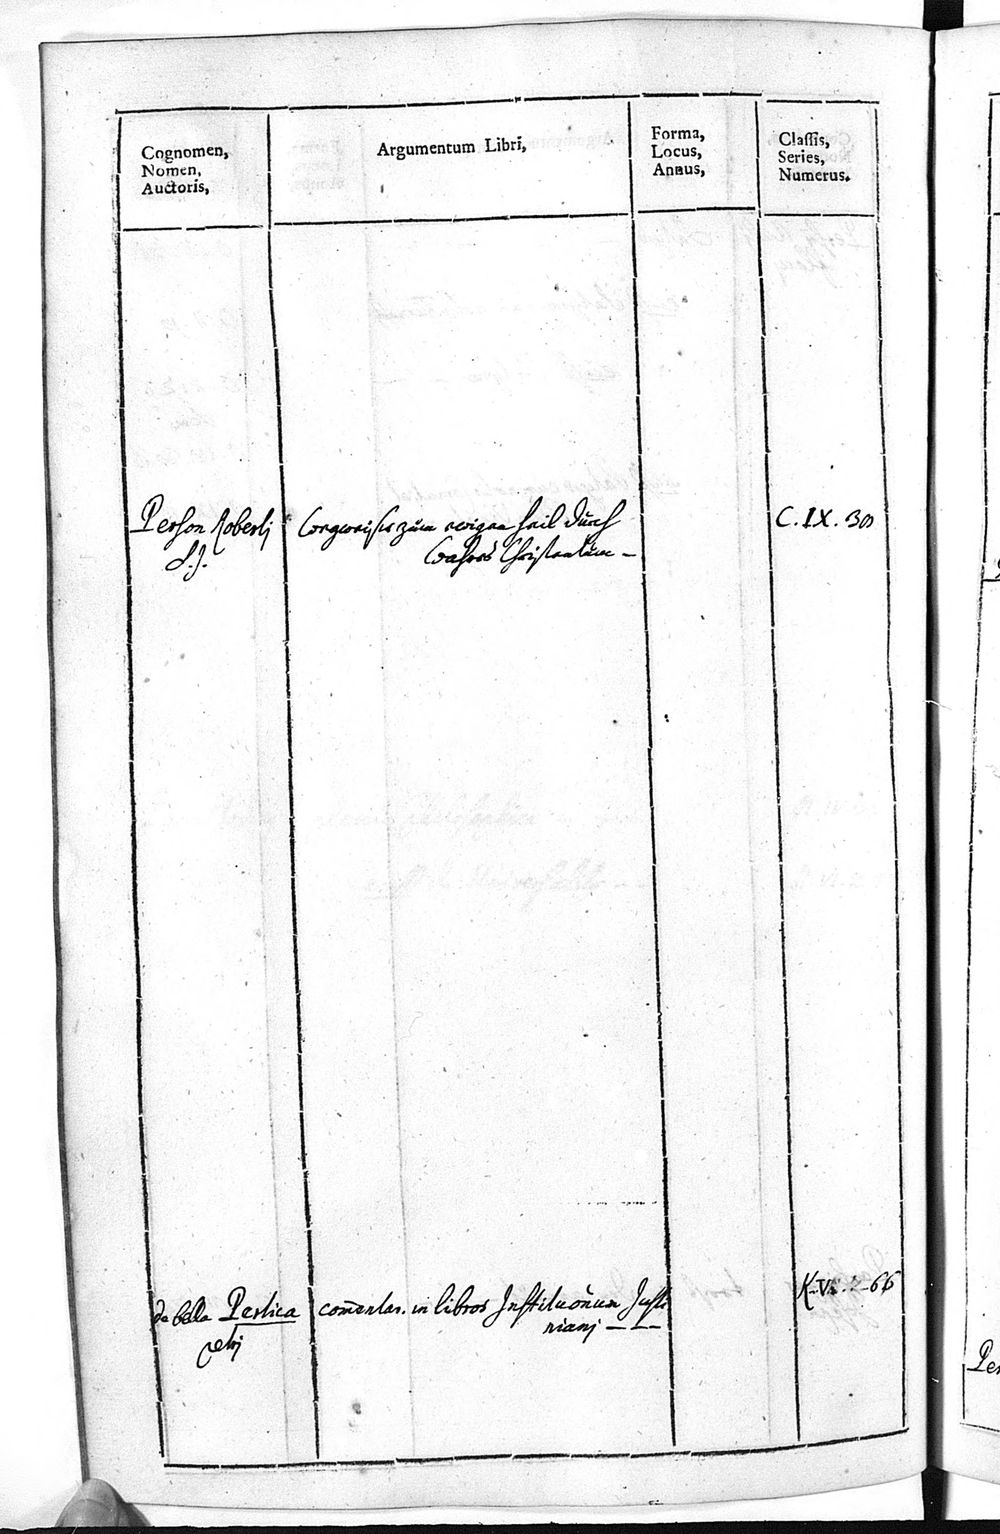 Cognomen,
Nomen,
Auctoris,
Argumentum Libri,
Forma,
Locus,
Annus,
Classis,
Series,
Numerus.
Person Roberti
S. J.
Wegweiser zum ewigen Heil durch
Wahres Christentum –
C. IX. 30
de bella Pertica
petri
com̄entar. in libros Institutionum Justi
niani – – –
K. V. 2 66
Per